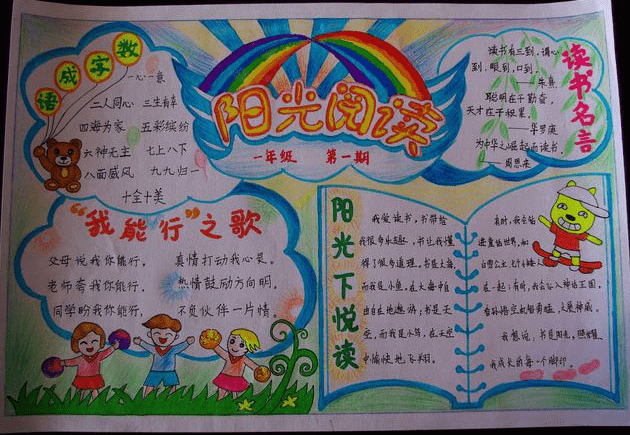 数字成语
一心一意
二人同心 三生有幸
四海为家 五彩缤纷
六神无主 七上八下
八面威风 九九归一
十全十美
阳光阅读
一年级 第一期
读书名言
读书有三到，谓心
到，眼到，口到。
——朱熹
聪明在于勤奋，
天才在于积累。
——华罗庚
为中华之崛起而读书。
——周恩来
“我能行”之歌
父母说我你能行， 真情打动我心灵。
老师夸我你能行， 热情鼓励方向明。
同学盼我你能行， 不负伙伴一片情。
阳光下悦读
我爱读书，书带给
我很多乐趣，书让我懂
得了很多道理。书是大海，
而我是小鱼，在大海中自
由自在地遨游，书是天
空，而我是小鸟，在天空
中愉快地飞翔。
有时，我会钻
进童话世界，和
白雪公主、七个小矮人
在一起；有时，我会 神话王国，
看孙悟空
我想说，书是阳光，照耀
我成长的每一个脚印。